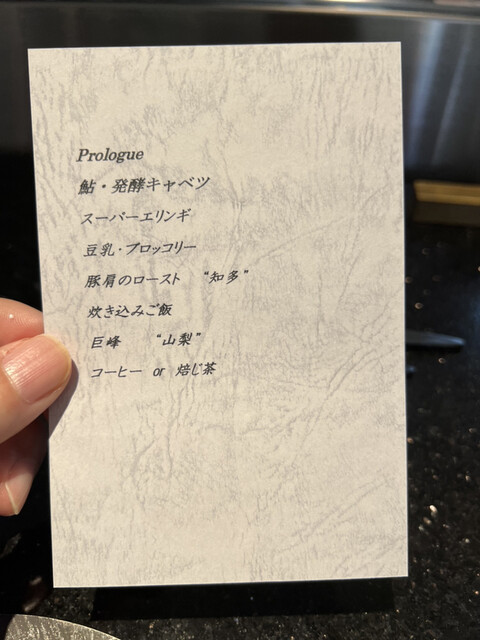 Prologue
鮎・発酵キャベツ
スーパーエリンギ
豆乳・ブロッコリー
豚肩のロースト　“知多”
炊き込みご飯
巨峰　“山梨”
コーヒー or 焙じ茶